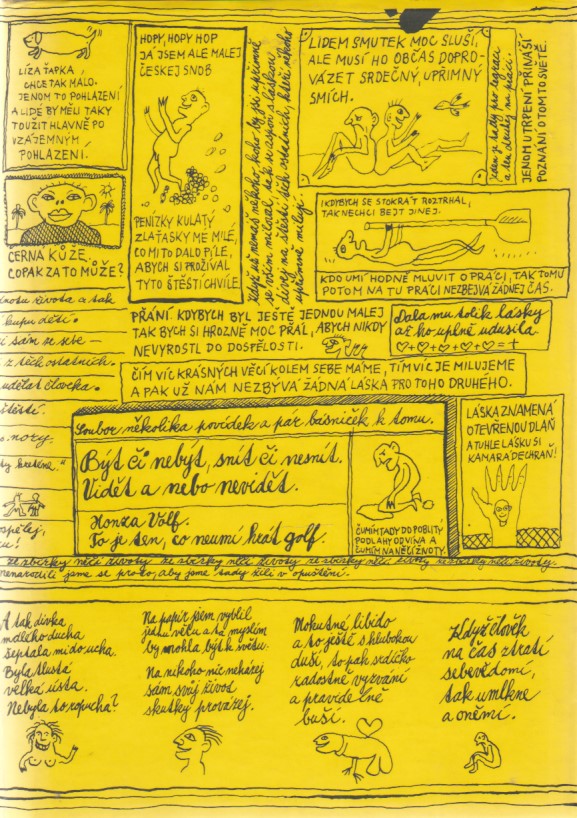 LÍZA ŤAPKA,
CHCE TAK MÁLO.
JENOM TO POHLAZENÍ
A LIDÉ BY MĚLI TAKY
TOUŽIT HLAVNĚ PO
VZÁJEMNÝM
POHLAZENÍ.
HOPY, HOPY HOP
JÁ JSEM ALE MALEJ
ČESKEJ SNOB
PENÍZKY KULATÝ
ZLAŤÁSKY MÉ MILÉ,
CO MI TO DALO PÍLE,
ABYCH SI PROŽÍVAL
TYTO ŠTĚSTÍ CHVÍLE.
Když už nemáš někoho, koho by jsi upřímně
se vším miloval, tak se aspoň s láskou
dívej na štěstí těch ostatních, kteří někoho
upřímně milují.
LIDEM SMUTEK MOC SLUŠÍ,
ALE MUSÍ HO OBČAS DOPRO-
VÁZET SRDEČNÝ, UPŘÍMNÝ
SMÍCH.
Jeden je tady pro legraci
a ten druhý na práci.
JENOM UTRPENÍ PŘINÁŠÍ
POZNÁNÍ O TOMTO SVĚTĚ.
ČERNÁ KŮŽE
COPAK ZA TO MŮŽE?
I KDYBYCH SE STOKRÁT ROZTRHAL,
TAK NECHCI BEJT JINEJ.
KDO UMÍ HODNĚ MLUVIT O PRÁCI, TAK TOMU
POTOM NA TU PRÁCI NEZBEJVÁ ŽÁDNEJ ČAS.
PŘÁNÍ. KDYBYCH BYL JEŠTĚ JEDNOU MALEJ
TAK BYCH SI HROZNĚ MOC PŘÁL, ABYCH NIKDY
NEVYROSTL DO DOSPĚLOSTI.
Dala mu tolik lásky
až ho úplně udusila
♡+♡+♡+♡+♡= †
ČÍM VÍC KRÁSNÝCH VĚCÍ KOLEM SEBE MÁME, TÍM VÍC JE MILUJEME
A PAK UŽ NÁM NEZBÝVÁ ŽÁDNÁ LÁSKA PRO TOHO DRUHÉHO.
života a tak
kupu dětí.
sám ze sebe –
z těch ostatních.
udělat člověka.
štěstí.
nozy.
kretena."
Soubor několika povídek a pár básniček k tomu.
Být či nebýt, snít či nesnít.
Vidět a nebo nevidět.
Honza Volf.
To je ten, co neumí hrát golf.
ČUMÍM TADY DO POBLITÝ
PODLAHY OD VÍNA A
ČUMÍM NA NĚČÍ ŽVOTY.
LÁSKA ZNAMENÁ
OTEVŘENOU DLAŇ
A TUHLE LÁSKU SI
KAMARÁDE CHRAŇ!
ze sbírky něčí životy ze sbírky něčí životy ze sbírky něčí životy ze sbírky něčí životy.
nenarodili jsme se proto, aby jsme tady žili v opuštění.
A tak dívka
mdlého ducha
šeptala mi do ucha.
Byla tlustá
velká ústa.
Nebyla to ropucha?
Na papír jsem vyblil
jednu větu a tá myslím
by mohla být k světu.
Na nikoho nic neházej
sám svůj život
skutky provázej.
Mokutné libido
a to ještě s hlubokou
duší, to pak srdíčko
radostně vyzvání
a pravidelně
buší.
Když člověk
na čas ztratí
sebevědomí,
tak umlkne
a oněmí.